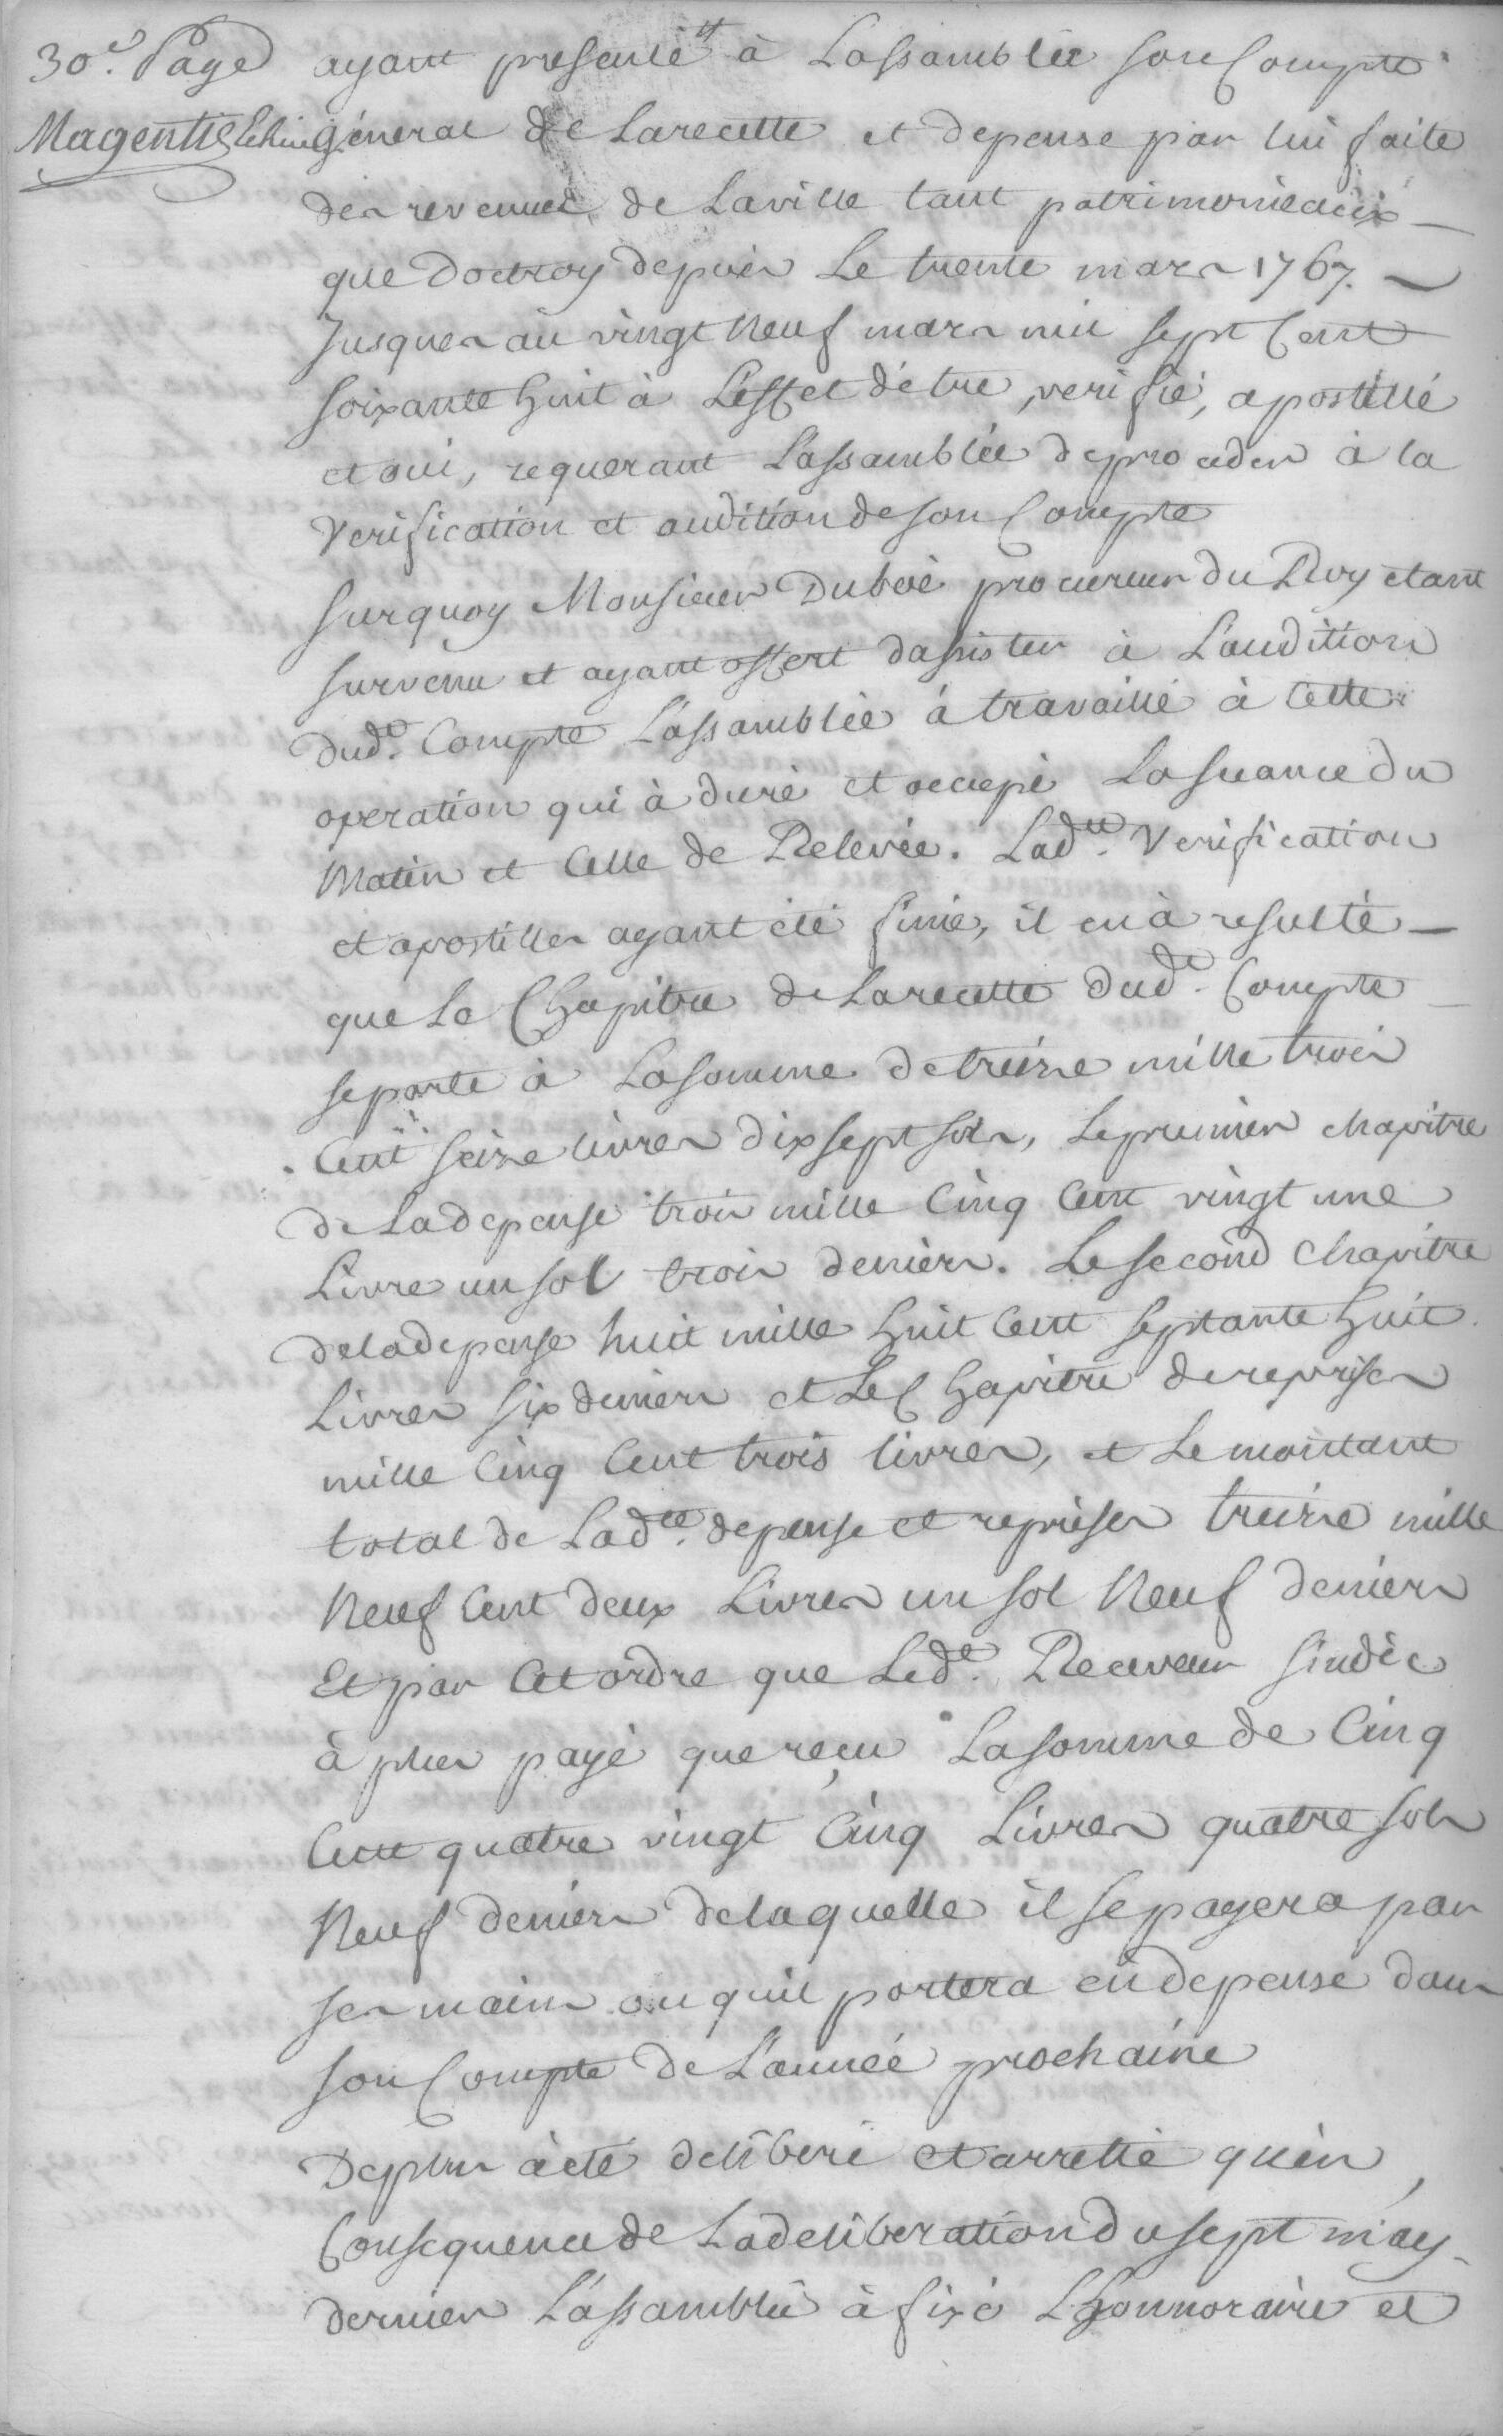 30e. Page
Magentis Echevin
ayant presenté à Lassamblée son Compte
géneral de Larecette et depense par lui faite
des revenues de Laville tant patrimonieaux
que doctroy depuis Le trente mars 1767.
Jusques au vingt Neuf mars mil sept Cent
soixante huit à L'effet d'être, verifié, apostillé
et oui, requerant Lassamblée deproceder à la
Verification et audition de son Compte
surquoy Monsieur Dubois procureur du Roy etant
survenu et ayant offert dassister à L'audition
dudt. Compte L'assamblée à travaillé à Cette
operation qui à duré et occupé La seance du
Matin et Celle de Relevée. Ladtte. Verification
et apostilles ayant été finie, il en à resulté
que Le Chapitre de Larecette dudt. Compte
se porte à La somme de treize mille trois
Cent seize livres dix sept sols, Le premier chapitre
de La depense trois mille Cinq Cent vingt une
Livre un sol trois deniers. Le second chapitre
dela depense huit mille huit Cent septante huit
Livres six deniers et Le Chapitre de reprises
mille Cinq Cent trois livres, et Le montant
total de Ladtte. depense et reprises treize mille
Neuf Cent deux Livres un sol Neuf deniers
Et par Cet ordre que Ledt. Receveur sindic
à plus payé que reçu La somme de Cinq
Cent quatre vingt Cinq Livres quatre sols
Neuf deniers delaquelle il sepayera par
ses mains ou quil portera en depense dans
son Compte de L'année prochaine
Deplus àeté deliberé et arretté qu'en
Consequence de La deliberation du sept may
dernier L'assamblée à fixé Lhonnoraire et